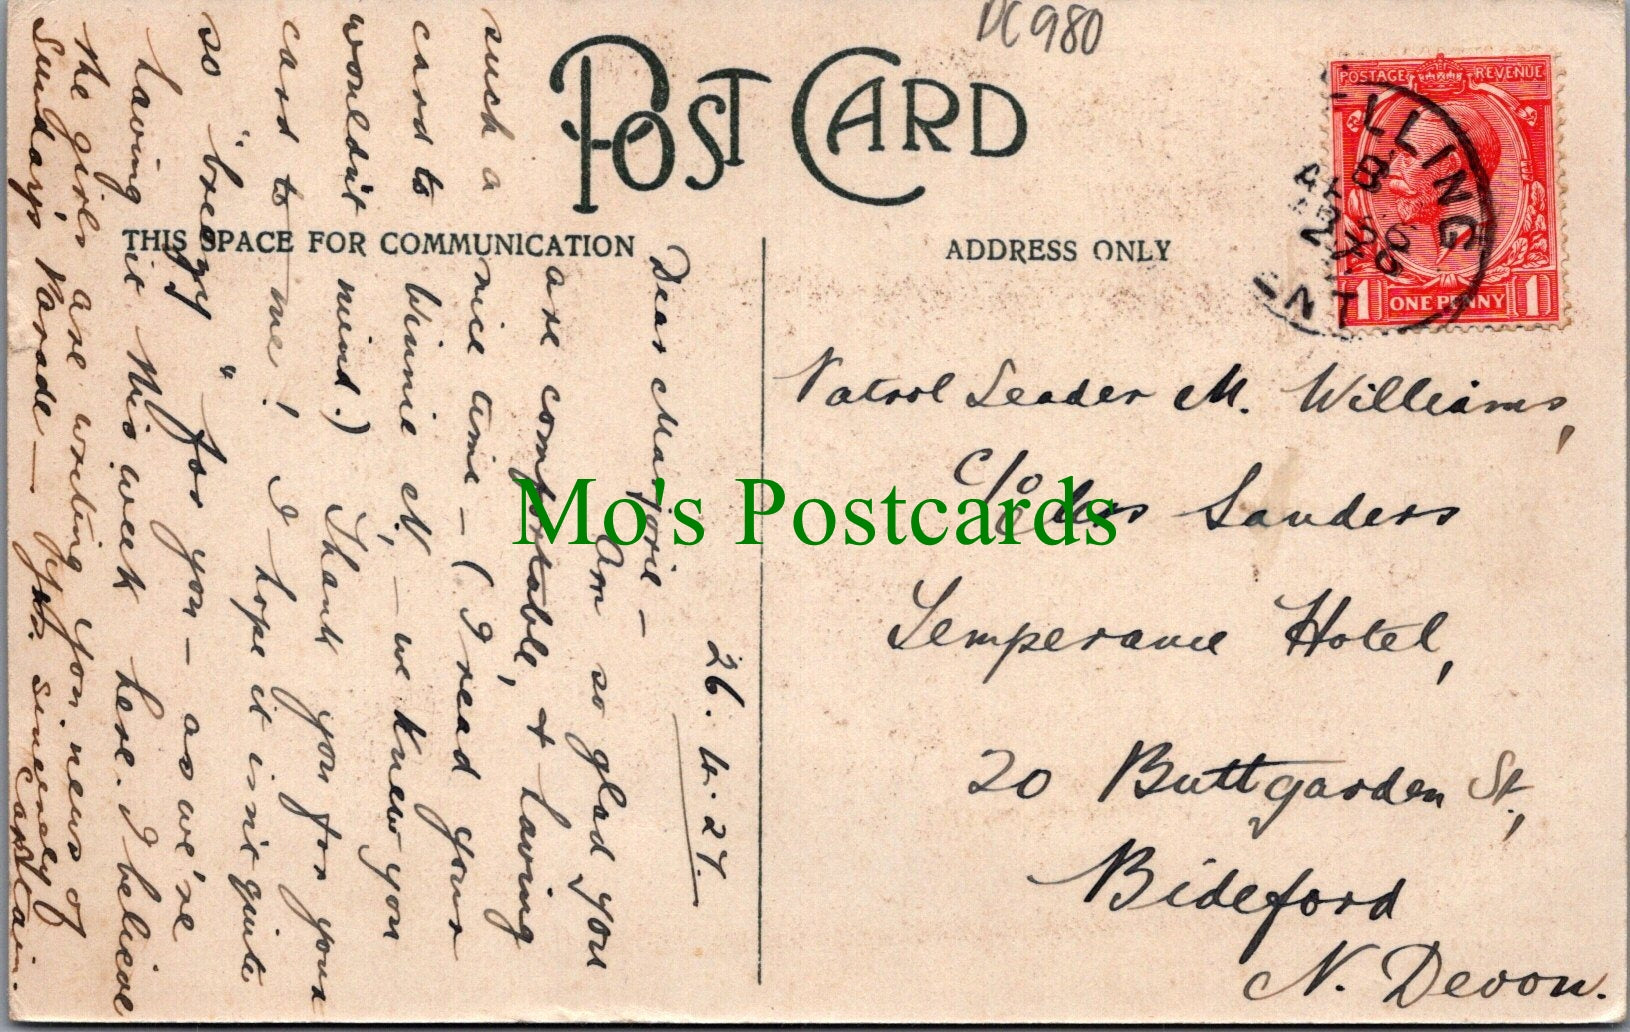 DC980
POST CARD
THIS SPACE FOR COMMUNICATION
ADDRESS ONLY
POSTAGE REVENUE
1 ONE PENNY 1
LLING
26.4.27.
Dear Marjorie —
Am so glad you
are comfortable, & having
nice time — (I read your
card to Winnie N, — we knew you
wouldn't mind.) Thank you for your
card to me! I hope it isn't quite
so "breezy" for you — as we're
having it this week here. I believe
the girls are writing you news of
Sunday's Parade — Yrs. sincerely
Captain.
such a
Patrol Leader M. Williams,
c/o Sanders
Temperance Hotel,
20 Buttgarden St,
Bideford
N. Devon.
Mo's Postcards